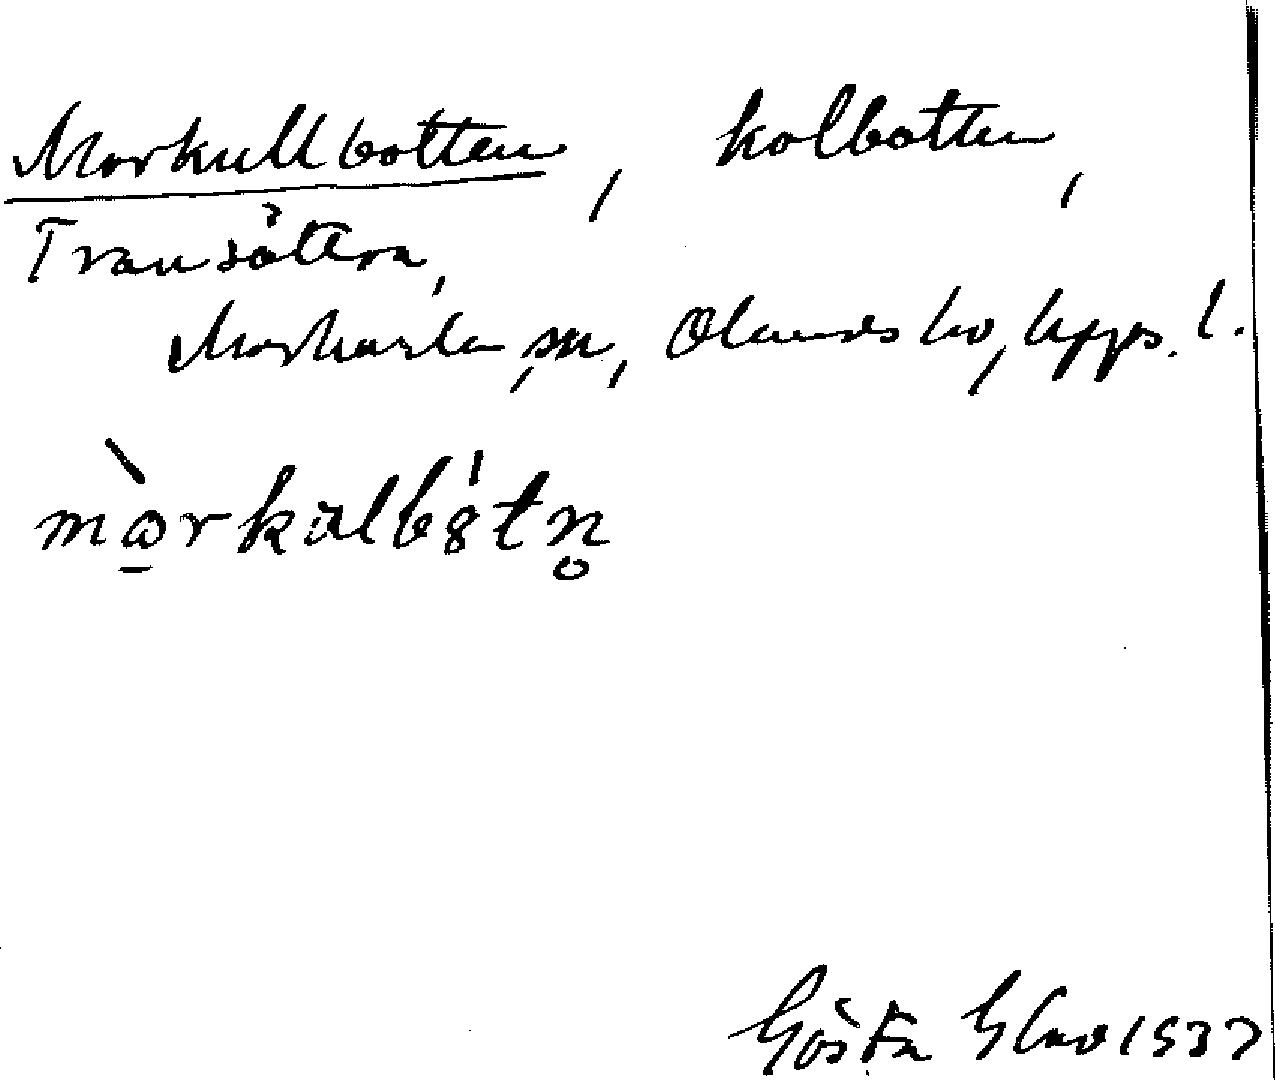 Morkullbotten, kolbotten,
Transättra,
Morkarla sn, Olands hd, Upps. l.
mòrkalbòtn̥
Gösta 1937